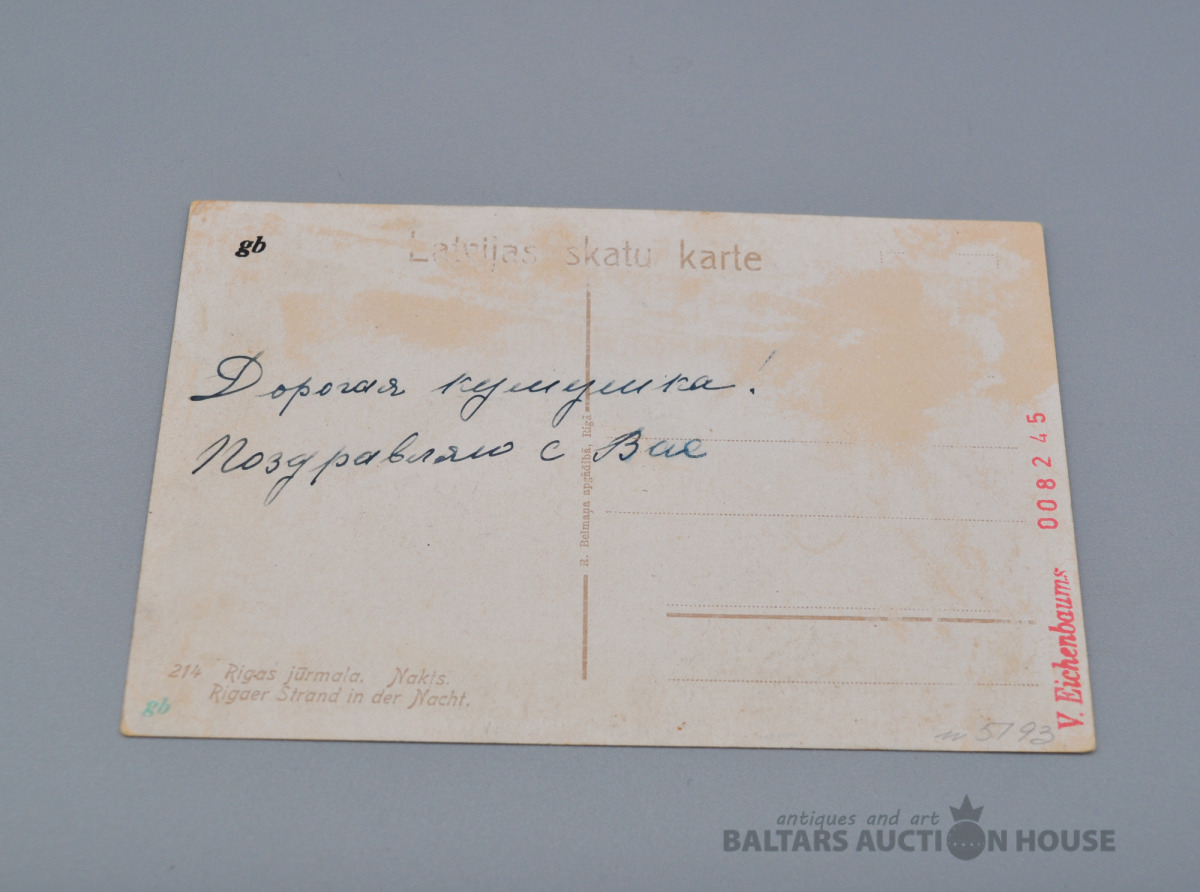 gb
Latvijas skatu karte
Дорогая кумушка!
Поздравляю с Вас
R. Belmaņa apgādībā, Rīgā
008245
V. Eichenbaums
214 Rīgas jūrmala. Nakts.
Rigaer Strand in der Nacht.
gb
5193
antiques and art
BALTARS AUCTION HOUSE